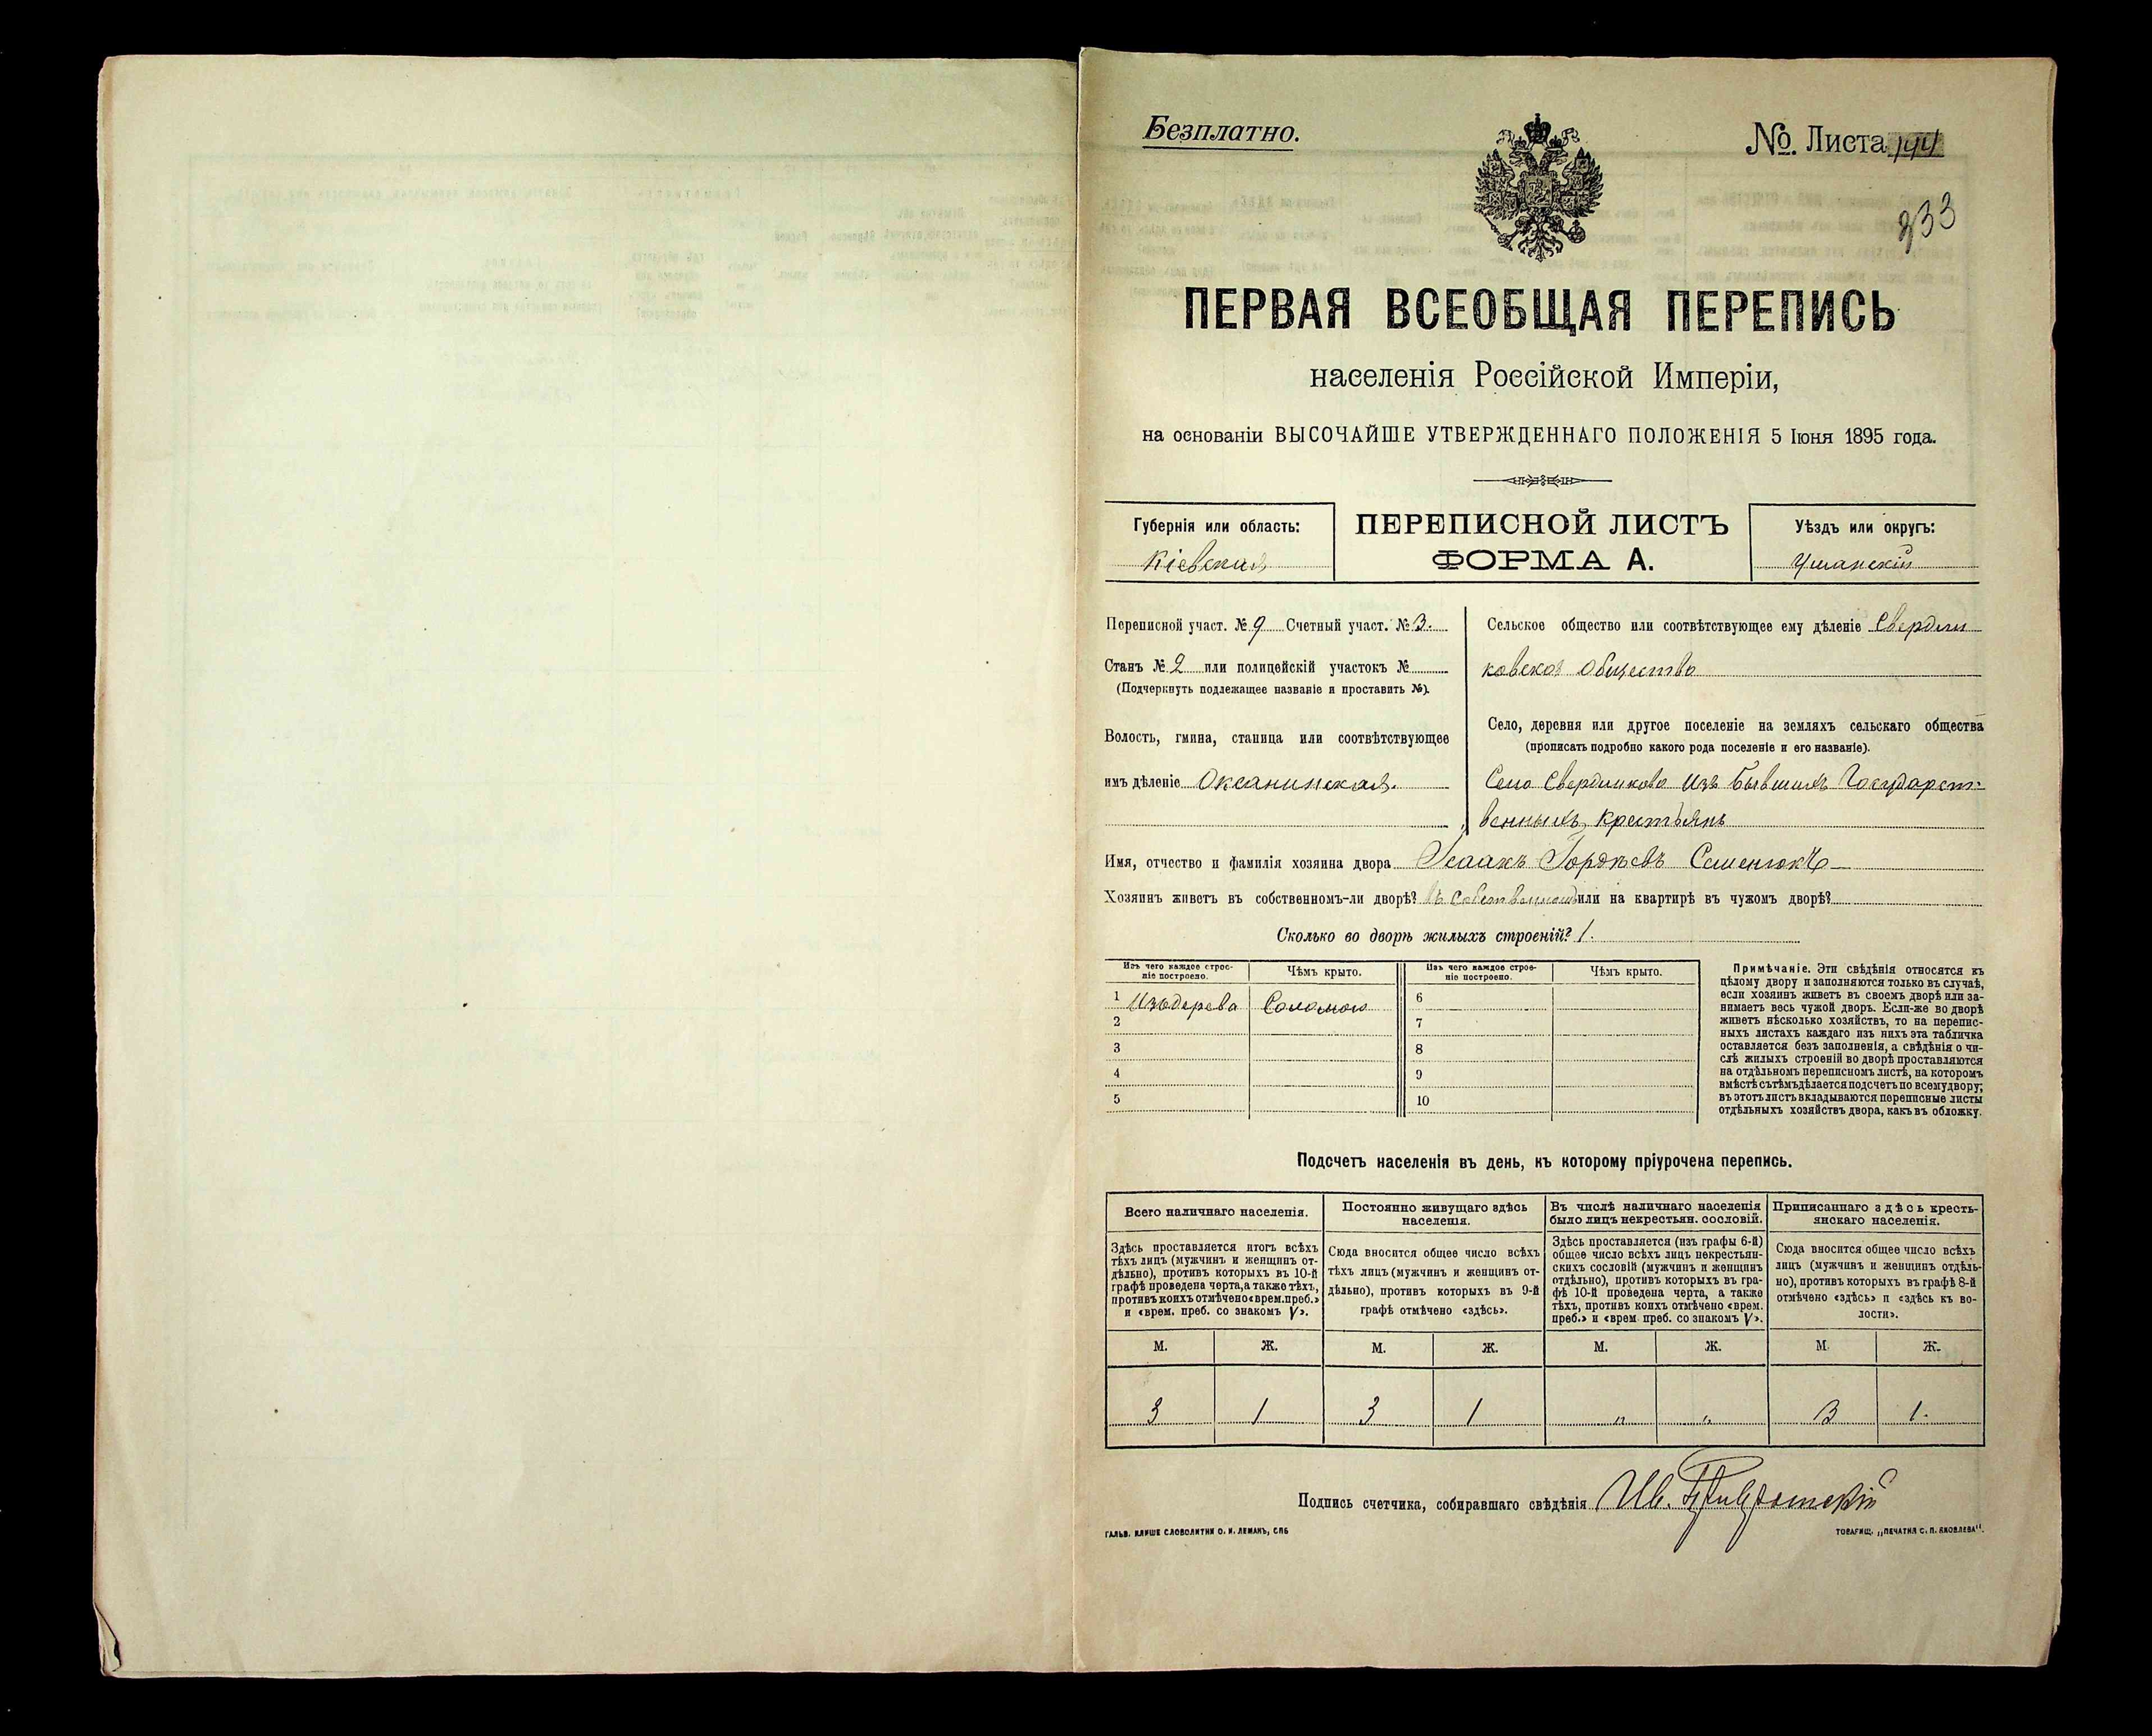 Безплатно.
№ Листа 144
233
ПЕРВАЯ ВСЕОБЩАЯ ПЕРЕПИСЬ
населенія Россійской Имперіи,
на основаніи ВЫСОЧАЙШЕ УТВЕРЖДЕННАГО ПОЛОЖЕНІЯ 5 Іюня 1895 года.
Губернія или область:
Кіевская
ПЕРЕПИСНОЙ ЛИСТЪ
ФОРМА А.
Уѣздъ или округъ:
Уманскій
Переписной участ. № 9 Счетный участ. № 3.
Станъ № 2 или полицейскій участокъ №
(Подчеркнуть подлежащее названіе и проставить №).
Волость, гмина, станица или соотвѣтствующее
имъ дѣленіе Оксанинская.
Сельское общество или соотвѣтствующее ему дѣленіе Свердли
ковское общество
Село, деревня или другое поселеніе на земляхъ сельскаго общества
(прописать подробно какого рода поселеніе и его названіе).
Село Свердликово изъ бывшихъ Государст-
венныхъ крестьянъ
Имя, отчество и фамилія хозяина двора Исаакъ Гордѣевъ Семенюкъ
Хозяинъ живетъ въ собственномъ-ли дворѣ? въ собственномъ или на квартирѣ въ чужомъ дворѣ?
Сколько во дворѣ жилыхъ строеній? 1.
Изъ чего каждое строе-
ніе построено.
Чѣмъ крыто.
Изъ чего каждое строе-
ніе построено.
Чѣмъ крыто.
1 Изъ дерева Соломою 6
2 7
3 8
4 9
5 10
Примѣчаніе. Эти свѣдѣнія относятся къ
цѣлому двору и заполняются только въ случаѣ,
если хозяинъ живетъ въ своемъ дворѣ или за-
нимаетъ весь чужой дворъ. Если-же во дворѣ
живетъ нѣсколько хозяйствъ, то на перепис-
ныхъ листахъ каждаго изъ нихъ эта табличка
оставляется безъ заполненія, а свѣдѣнія о чи-
слѣ жилыхъ строеній во дворѣ проставляются
на отдѣльномъ переписномъ листѣ, на которомъ
вмѣстѣ съ тѣмъ дѣлается подсчетъ по всему двору;
въ этотъ листъ вкладываются переписные листы
отдѣльныхъ хозяйствъ двора, какъ въ обложку.
Подсчетъ населенія въ день, къ которому пріурочена перепись.
Всего наличнаго населенія.
Здѣсь проставляется итогъ всѣхъ
тѣхъ лицъ (мужчинъ и женщинъ от-
дѣльно), противъ которыхъ въ 10-й
графѣ проведена черта, а также тѣхъ,
противъ коихъ отмѣчено «врем. преб.»
и «врем. преб. со знакомъ V».
Постоянно живущаго здѣсь
населенія.
Сюда вносится общее число всѣхъ
тѣхъ лицъ (мужчинъ и женщинъ от-
дѣльно), противъ которыхъ въ 9-й
графѣ отмѣчено «здѣсь».
Въ числѣ наличнаго населенія
было лицъ некрестьян. сословій.
Здѣсь проставляется (изъ графы 6-й)
общее число всѣхъ лицъ некрестьян-
скихъ сословій (мужчинъ и женщинъ
отдѣльно), противъ которыхъ въ гра-
фѣ 10-й проведена черта, а также
тѣхъ, противъ коихъ отмѣчено «врем.
преб.» и «врем. преб. со знакомъ V».
Приписаннаго здѣсь кресть-
янскаго населенія.
Сюда вносится общее число всѣхъ
лицъ (мужчинъ и женщинъ отдѣль-
но), противъ которыхъ въ графѣ 8-й
отмѣчено «здѣсь» и «здѣсь къ во-
лости».
М. Ж. М. Ж. М. Ж. М. Ж.
3 1 3 1 " " 3 1.
Подпись счетчика, собиравшаго свѣдѣнія Ив.
ГАЛЬВ. КЛИШЕ СЛОВОЛИТНИ О. И. ЛЕМАНЪ, СПБ
ТОВАРИЩ. „ПЕЧАТНЯ С. П. ЯКОВЛЕВА".